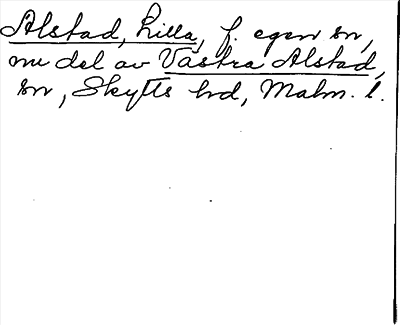 Alstad, Lilla, f. egen sn,
nu del av Västra Alstad,
sn, Skytts hrd, Malm. l.